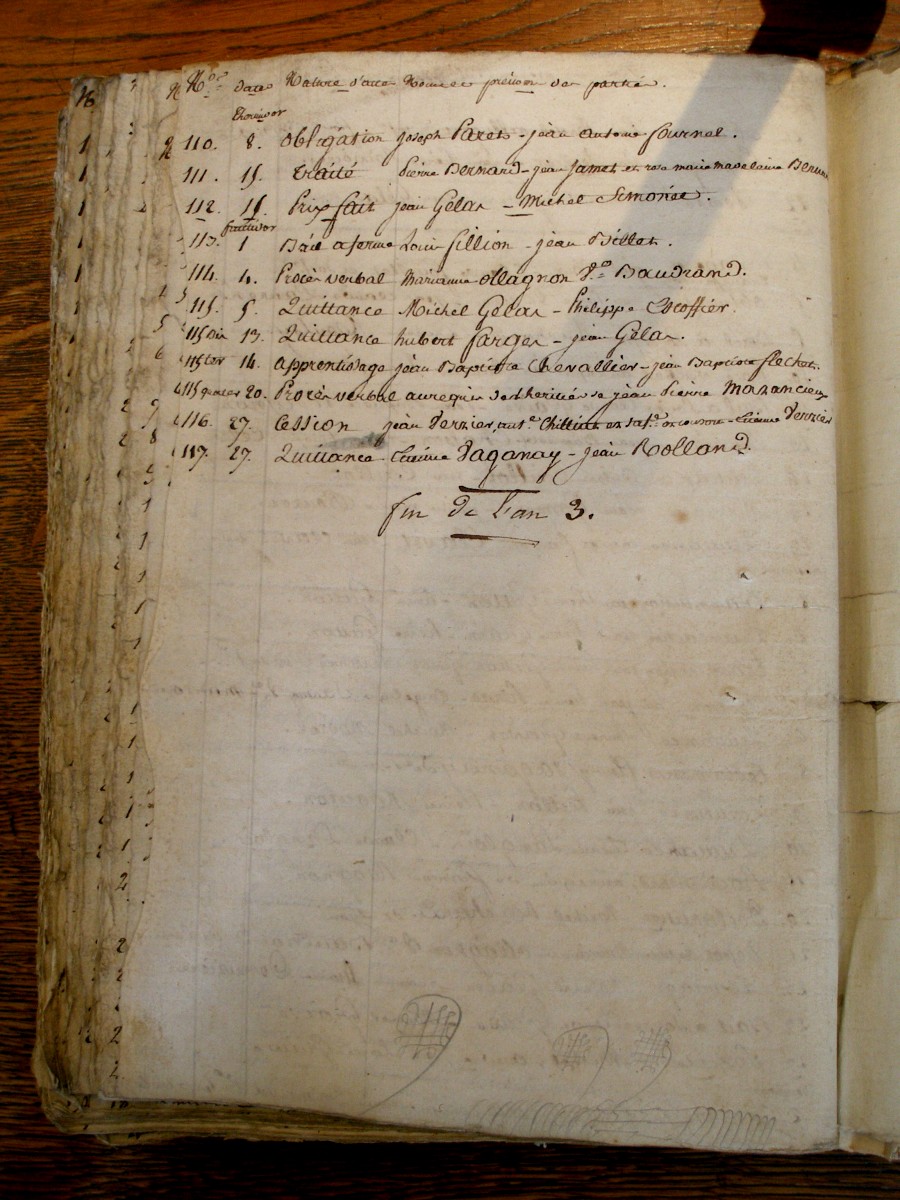 Nos. date Nature d'acte Noms et prénom des parties.
thermidor
110. 8. obligation joseph Paret - jean antoine fournel.
111. 15. traité pierre Bernard - jean Jamet et rose marie madelaine Bernard
112. 15. Prix fait jean Gelas - Michel Simonet.
fructidor
113. 1 Bail a ferme Louis fillion - jean Billet.
114. 4. Procès verbal Marianne ollagnon Ve. Baudrand.
115. 5. Quittance Michel Gelas - Philippe Escoffier.
115 bis 13. Quittance hubert farges - jean Gelas.
115 ter 14. apprentissage jean Baptiste Chevallier - jean Baptiste flechet.
115 quater 20. Procès verbal au requis des heritiers de jean pierre Mazancieux
116. 27. Cession jean Verrier, aut. et Etienne Verrier
117. 27. Quittance Etienne Paganay - jean Rolland.
fin de l'an 3.